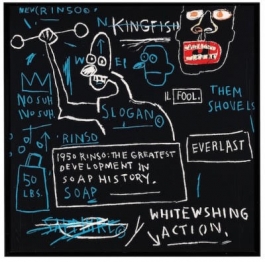 NEW (RINSO©
KINGFISH
N.
W
E
NO SUH
NO SUH.
SLOGAN©
IL
FOOL.
THEM
SHOVELS
RINSO
EVERLAST
1950 RINSO: THE GREATEST
DEVELOPMENT IN
SOAP HISTORY.
SOAP
50
LBS.
WHITEWSHING
ACTION.